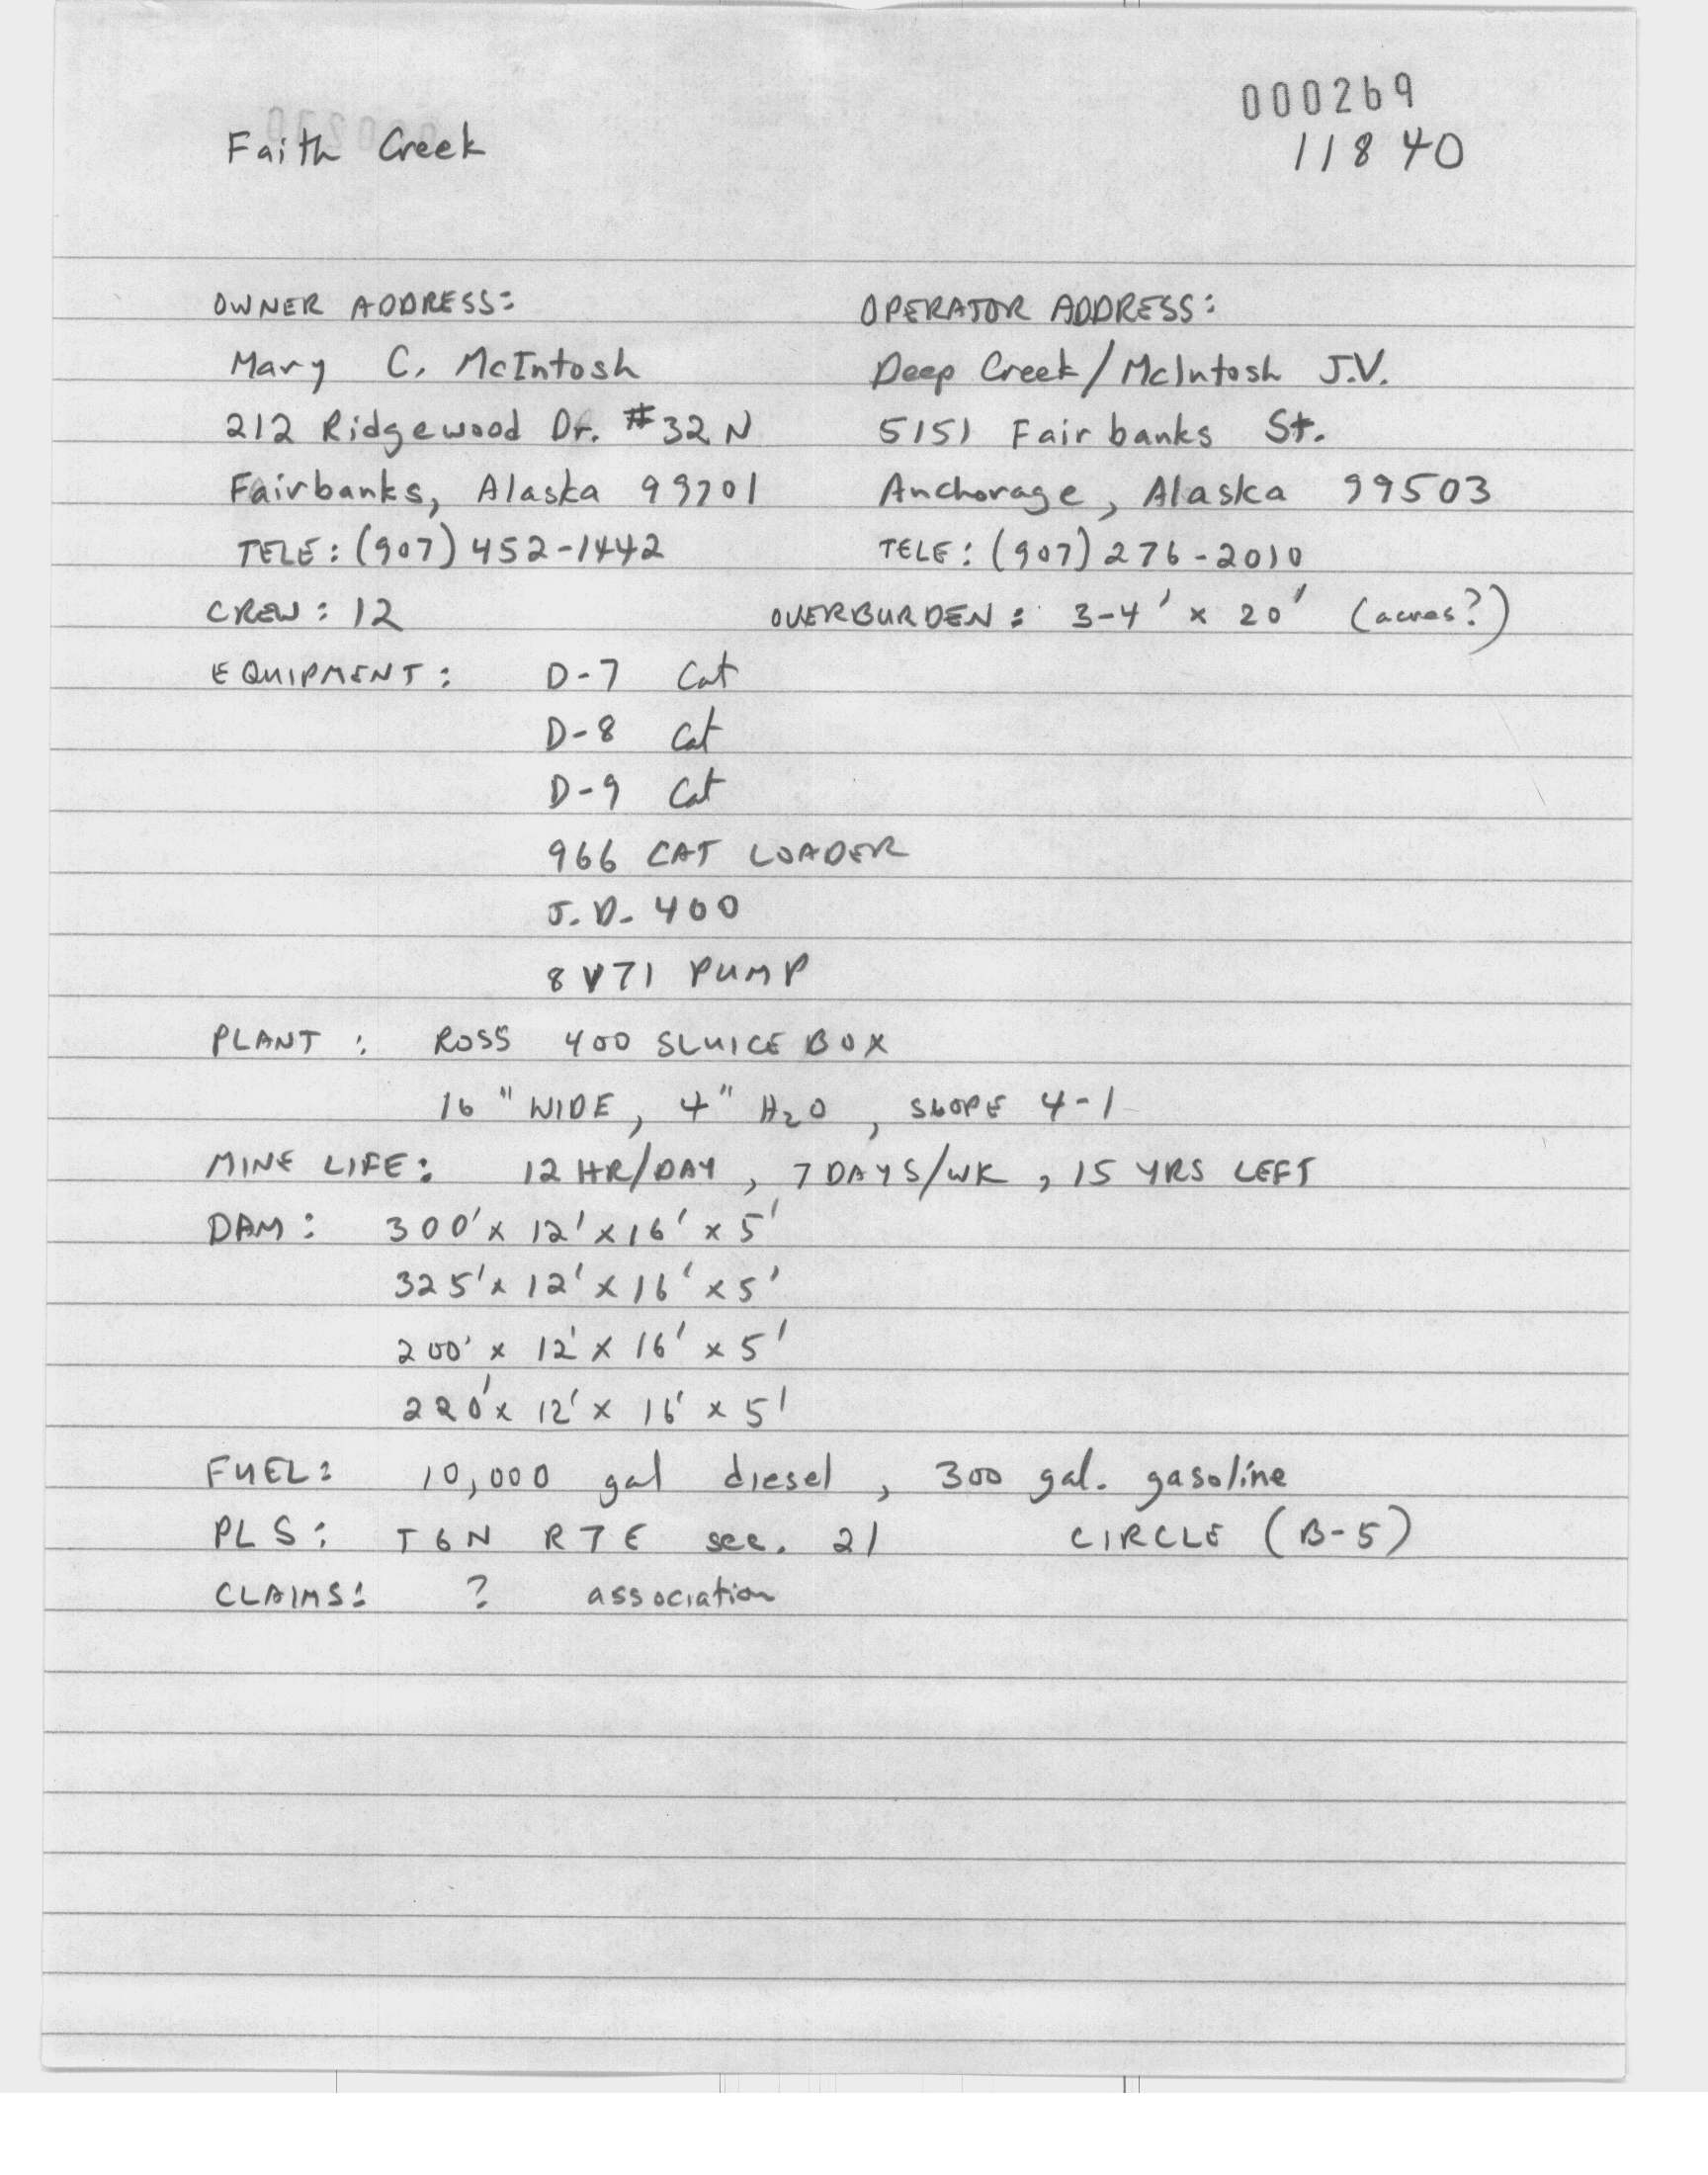 000269
Faith Creek 11840
OWNER ADDRESS: OPERATOR ADDRESS:
Mary C. McIntosh Deep Creek/McIntosh J.V.
212 Ridgewood Dr. #32N 5151 Fairbanks St.
Fairbanks, Alaska 99701 Anchorage, Alaska 99503
TELE: (907) 452-1442 TELE: (907) 276-2010
CREW: 12 OVERBURDEN: 3-4' x 20' (acres?)
EQUIPMENT: D-7 Cat
D-8 Cat
D-9 Cat
966 CAT LOADER
J.D. 400
8V71 PUMP
PLANT: ROSS 400 SLUICE BOX
16" WIDE, 4" H2O, SLOPE 4-1
MINE LIFE: 12 HR/DAY, 7 DAYS/WK, 15 YRS LEFT
DAM: 300' x 12' x 16' x 5'
325' x 12' x 16' x 5'
200' x 12' x 16' x 5'
220' x 12' x 16' x 5'
FUEL: 10,000 gal diesel, 300 gal. gasoline
PLS: T6N R7E sec. 21 CIRCLE (B-5)
CLAIMS: ? association